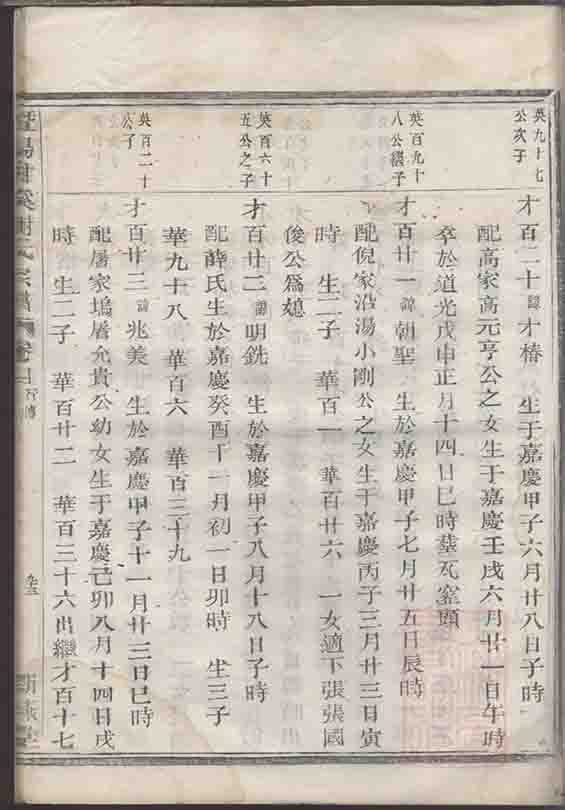 英九十七
公次子
才百二十 諱才椿 生于嘉慶甲子六月廿八日子時
配高家高元亨公之女生于嘉慶壬戌六月廿一日午時
卒於道光戊申正月十四日巳時塟瓦窰頭
英百九十
八公繼子
才百廿一 諱朝聖 生於嘉慶甲子七月廿五日辰時
配倪家沿湯小剛公之女生于嘉慶丙子三月廿三日寅
時 生二子 華百一 華百廿六 一女適下張張國
俊公爲媳
英百六十
五公之子
才百廿二 諱明銑 生於嘉慶甲子八月十八日子時
配薛氏生於嘉慶癸酉十一月初一日卯時 生三子
華九十八 華百六 華百三十九
英百二十
公子
才百廿三 諱兆美 生於嘉慶甲子十一月廿三日巳時
配屠家塢屠允貴公幼女生于嘉慶己卯八月十四日戌
時 生二子 華百廿二 華百三十六出繼才百十七
暨陽 溪 氏宗譜 卷 行傳